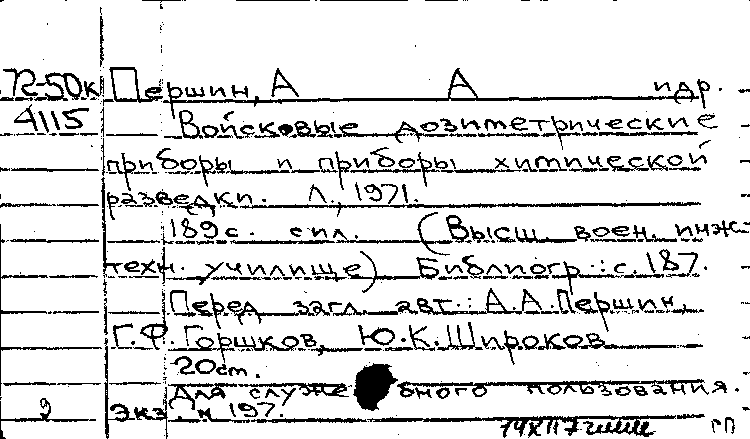 72-50к Першин, А А и др.
4115 Войсковые дозиметрические
приборы и приборы химической
разведки. Л., 1971.
189с. с ил. (Высш. воен. инж.-
техн. училище) Библиогр.: с. 187.
Перед загл. авт.: А.А.Першин,
Г.Ф.Горшков, Ю.К.Широков
20см.
Для служебного пользования.
2 Экз. н 197.
РП